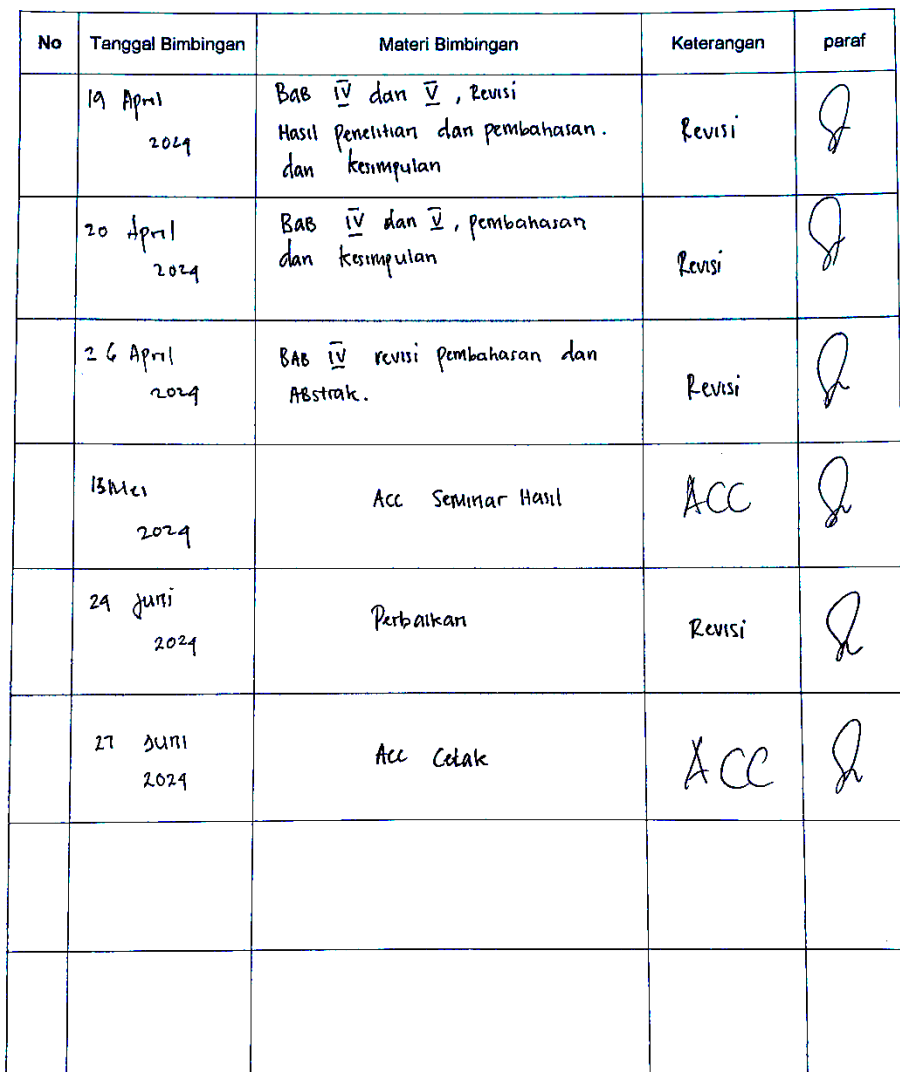 No Tanggal Bimbingan Materi Bimbingan Keterangan paraf
19 April
2024
BaB IV dan V, Revisi
Hasil penelitian dan pembahasan.
dan kesimpulan
Revisi
20 April
2024
BaB IV dan V, pembahasan
dan kesimpulan
Revisi
26 April
2024
BAB IV revisi pembahasan dan
ABstrak.
Revisi
13 Mei
2024
Acc Seminar Hasil
ACC
24 Juni
2024
Perbaikan
Revisi
27 Juni
2024
Acc Cetak
ACC